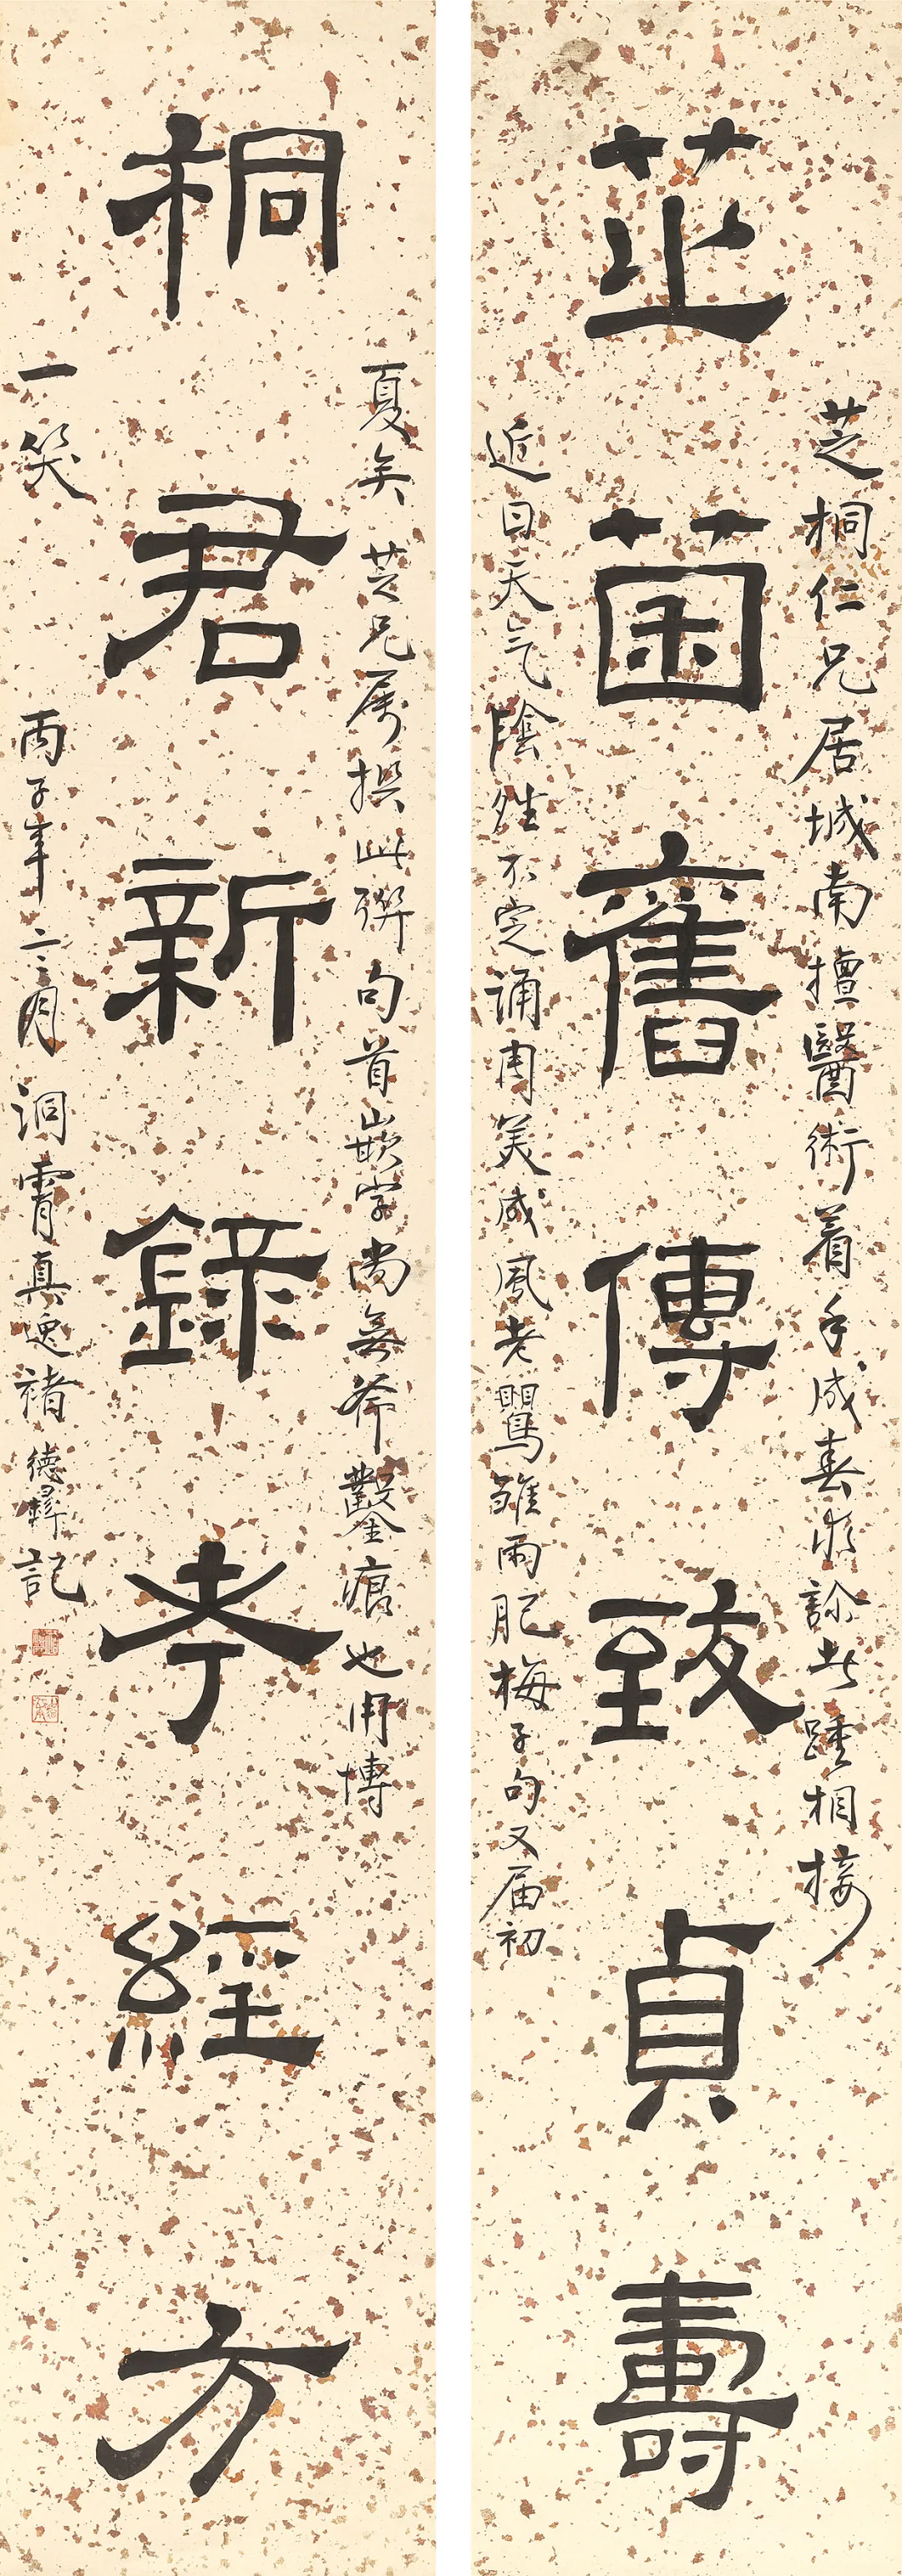 芝桐仁兄居城南擅醫術着手成春求診者踵相接
芝菌舊傳致貞壽
近日天气陰夝不定誦周美成風老鶯雛雨肥梅子句又届初
夏矣芝兄属撰此聯句首嵌字尚無斧鑿痕也用博
桐君新錄考經方
一笑 丙子年亖月洞霄真逸褚德彝記